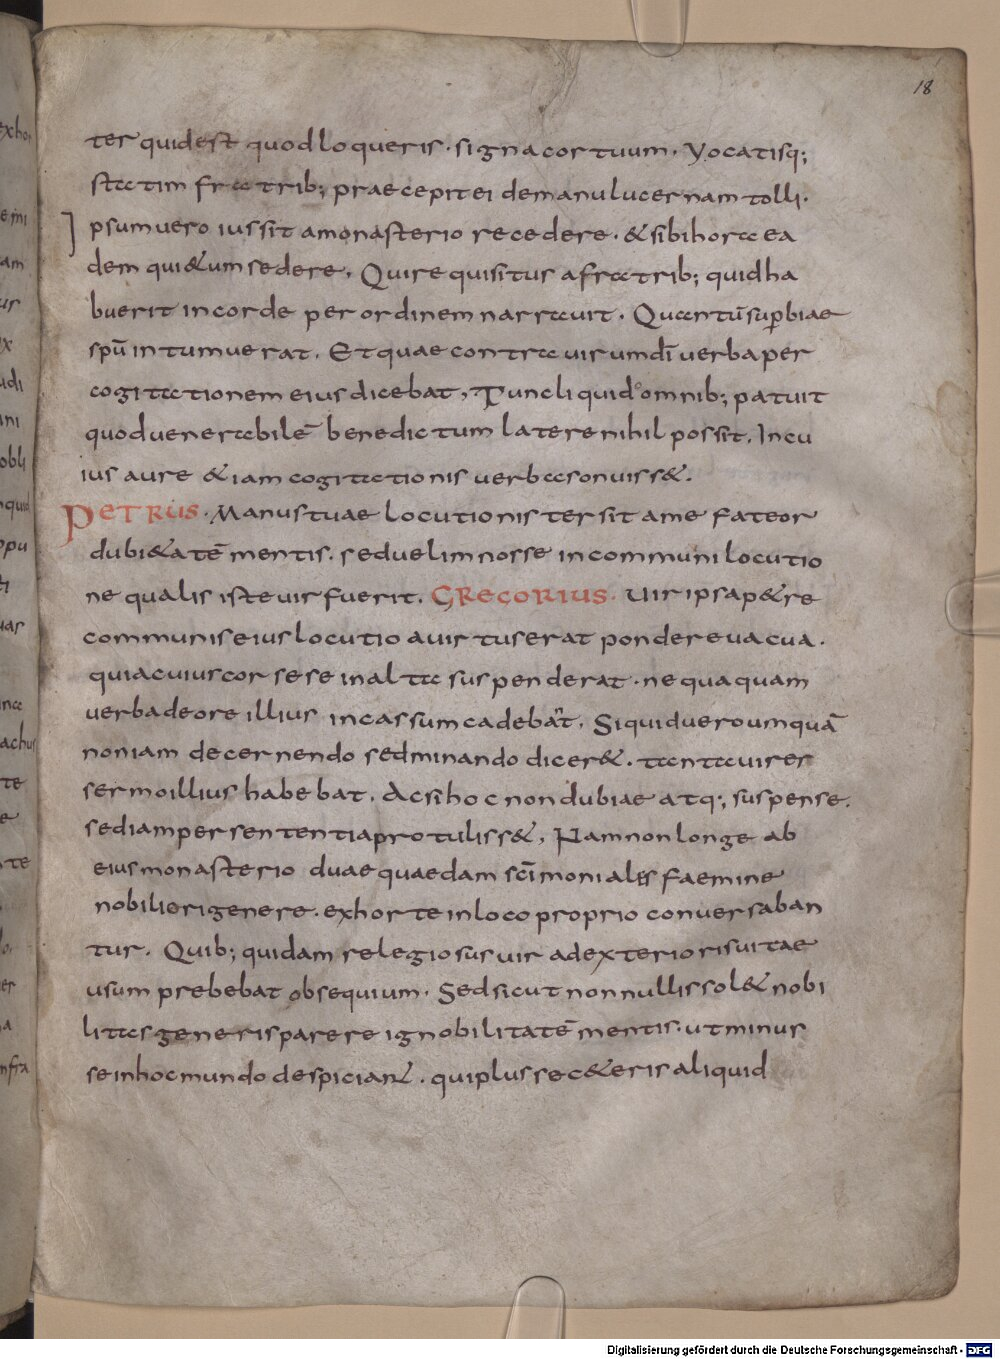 18
ter quidest quod loqueris · signa cor tuum · Vocatisq;
statim fratrib; praecepit ei demanu lucernam tolli ·
Ipsum uero iussit amonasterio recedere · & sibi hora ea
dem qui&um sedere, Qui requisitus afratrib; quid ha
buerit incorde per ordinem narrauit · Quantū sup̄biae
spū intumuerat · Et quae contra uirum dī uerba per
cogitationem eius dicebat, Tunc liquido omnib; patuit
quod uenerabilē benedictum latere nihil possit. In cu
ius aure & iam cogitationis uerba sonuiss&.
PETRUS · Manus tuae locutionis tersit ame fateor
dubi&atē mentis. sed uelim nosse in communi locutio
ne qualis iste uir fuerit. GREGORIUS · Uir ipsa p&re
communis eius locutio auirtus erat pondere uacua.
quia cuius cor sese in alta suspenderat · ne quaquam
uerba deore illius incassum cadebat, Si quid uero umquā
non iam decernendo sed minando dicer&. tanta uires
sermo illius habebat. Acsi hoc non dubiae atq; suspense.
sed iam per sententia protuliss&, Nam non longe ab
eius monasterio duae quaedam scīmoniales faemine
nobiliori genere. exhorte in loco proprio conuersaban
tur. Quib; quidam relegiosus uir ad exterioris uitae
usum prebebat obsequium. Sed sicut nonnullis sol& nobi
litas generis parere ignobilitatē mentis. ut minus
se in hoc mundo despician&. qui plus se c&eris aliquid
Digitalisierung gefördert durch die Deutsche Forschungsgemeinschaft - DFG